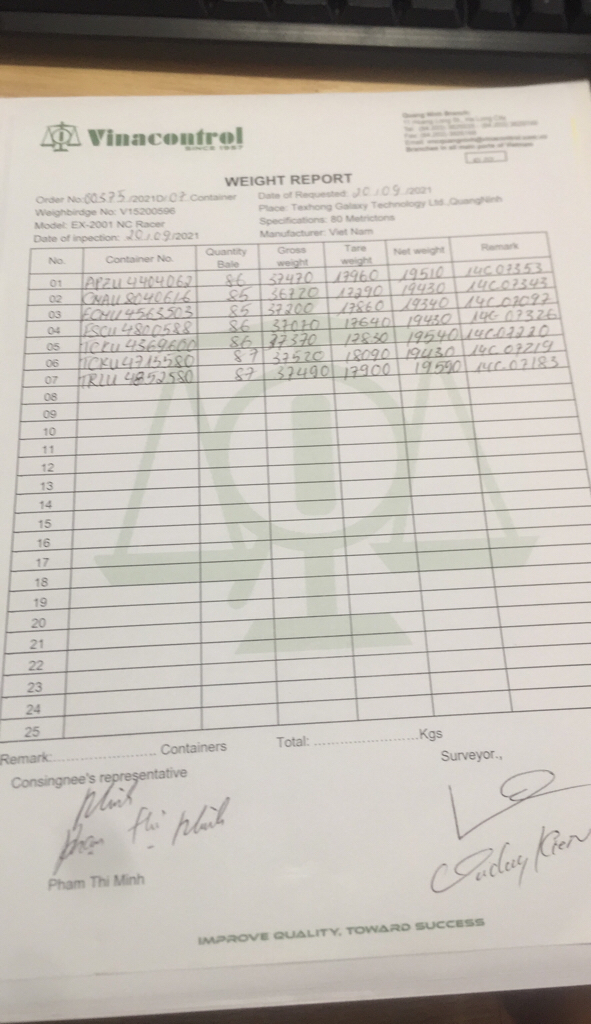 Vinacontrol
SINCE 1957
Quang Ninh Branch:
WEIGHT REPORT
Order No: 00375/2021D/07 Container
Date of Requested: 20/09/2021
Weighbirdge No: V15200596
Place: Texhong Galaxy Technology Ltd.,QuangNinh
Model: EX-2001 NC Racer
Specifications: 80 Metrictons
Date of inpection: 20/09/2021
Manufacturer: Viet Nam
No. Container No. Quantity Bale Gross weight Tare weight Net weight Remark
01 APZU 4404062 86 37470 17960 19510 14C 07353
02 CMAU 8040616 85 36720 17290 19430 14C 07343
03 ECMU 4563503 85 37200 17860 19340 14C 07097
04 FSCU 4800588 86 37070 17640 19430 14C 07326
05 TCKU 4369600 86 37370 17830 19540 14C 07220
06 TCKU 4715580 87 37520 18090 19430 14C 07219
07 TRLU 4852580 87 37490 17900 19590 14C 07183
08
09
10
11
12
13
14
15
16
17
18
19
20
21
22
23
24
25
Remark:........................ Containers Total: ........................Kgs
Consingnee's representative
Surveyor.,
Minh
Phạm Thị Minh
Pham Thi Minh
IMPROVE QUALITY, TOWARD SUCCESS